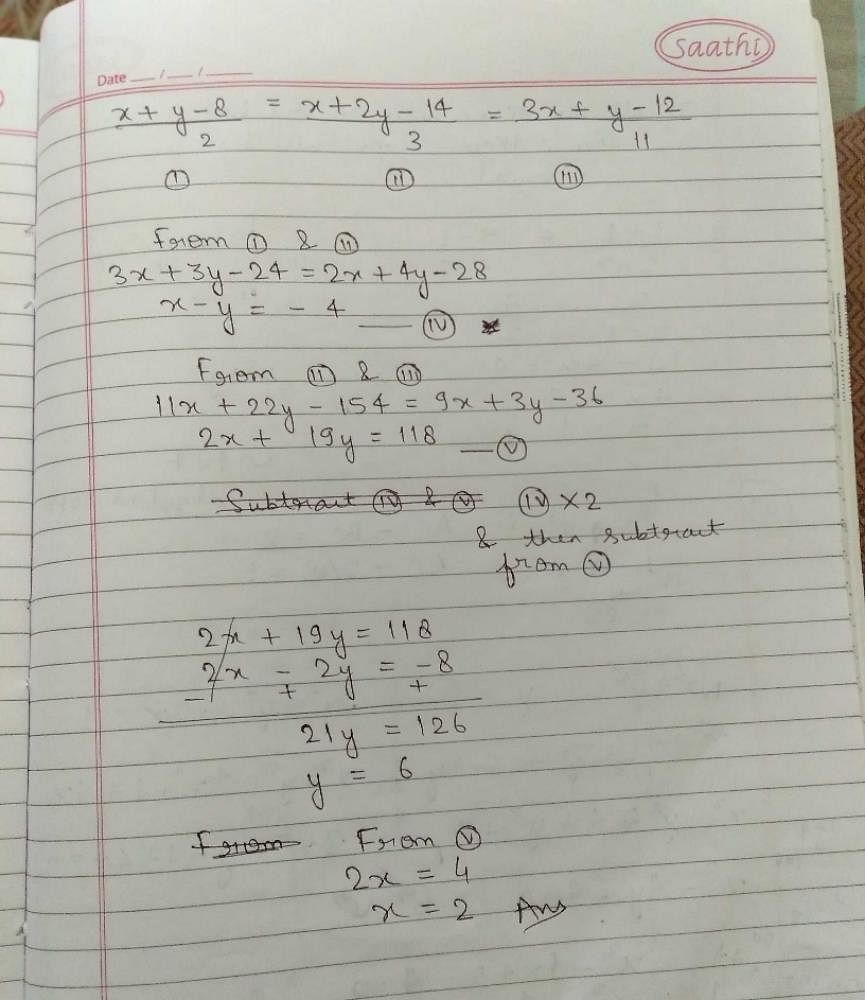 Saathi
Date __/__/____
x + y - 8 / 2 = x + 2y - 14 / 3 = 3x + y - 12 / 11
Ⓘ Ⓘⓘ Ⓘⓘⓘ
From Ⓘ & Ⓘⓘ
3x + 3y - 24 = 2x + 4y - 28
x - y = - 4 — (IV)
From (II) & (III)
11x + 22y - 154 = 9x + 3y - 36
2x + 19y = 118 — (V)
Subtract (IV) & (V) (IV) × 2
& then subtract
from (V)
2x + 19y = 118
2x - 2y = -8
- + +
21y = 126
y = 6
From From (V)
2x = 4
x = 2 Ans